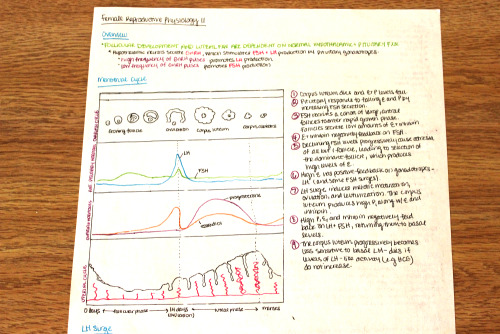 Female Reproductive Physiology II
Overview
*Follicular development and luteal fxn are dependent on normal hypothalamic + pituitary fxn
*Hypothalamic neurons secrete GnRH, which stimulates FSH + LH production by pituitary gonadotropes.
*high frequency of GnRH pulses promotes LH production.
*low frequency of GnRH pulses promotes FSH production.
Menstrual Cycle
growing follicle
ovulation
corpus luteum
LH
FSH
progesterone
estradiol
0 days
follicular phase
14 days
(ovulation)
luteal phase
menses
① Corpus luteum dies and E+P levels fall
② Pituitary responds to falling E and P by
increasing FSH secretion.
③ FSH recruits a cohort of large antral
follicles to enter rapid growth phase.
Follicles secrete low amounts of E + inhibin
④ E + inhibin negatively feedback on FSH.
⑤ Declining FSH levels progressively cause atresia
of all but 1 follicle, leading to selection of
the dominant follicle, which produces
high levels of E.
⑥ High E has positive feedback on gonadotropes-
LH (and some FSH) surges.
⑦ LH surge induces meiotic maturation,
ovulation, and luteinization. The corpus
luteum produces high P, along w/ E and
inhibin.
⑧ High P, E, and inhibin negatively feed
back on LH + FSH, returning them to basal
levels.
⑨ The corpus luteum progressively becomes
less sensitive to basal LH - dies if
levels of LH-like activity (e.g. hCG)
do not increase.
LH Surge